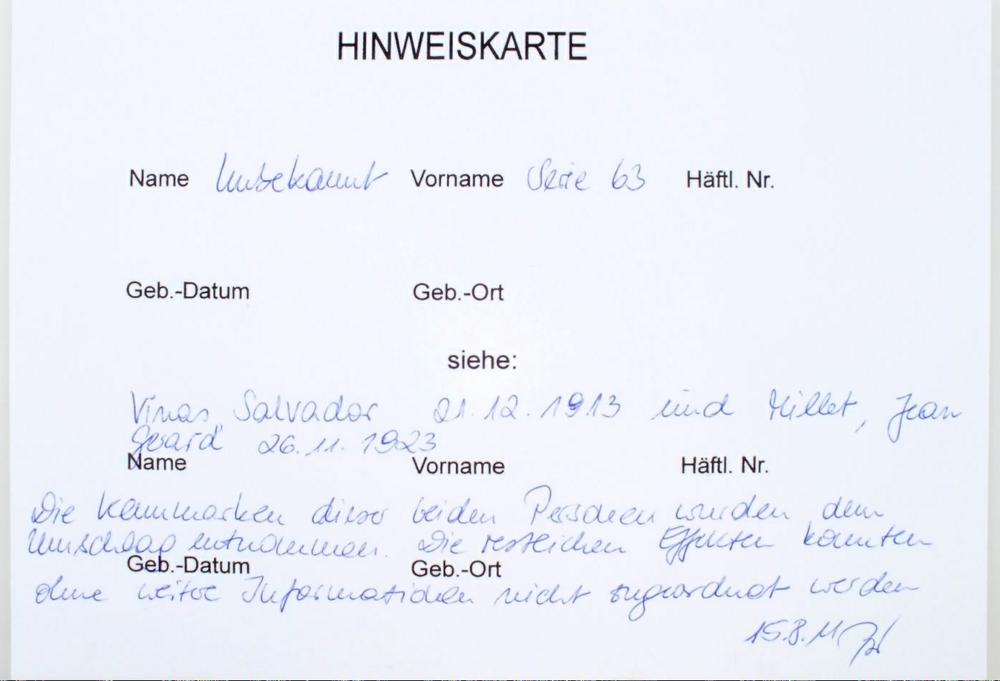 HINWEISKARTE
Name Unbekannt Vorname Serie 63 Häftl. Nr.
Geb.-Datum Geb.-Ort
siehe:
Vinas, Salvador 21.12.1913 und Millet, Jean
26.11.1923
Name Vorname Häftl. Nr.
Die Kennmarken dieser beiden Personen wurden dem
Umschlag entnommen. Die restlichen Effekten konnten
Geb.-Datum Geb.-Ort
ohne weitere Informationen nicht zugeordnet werden
15.8.11